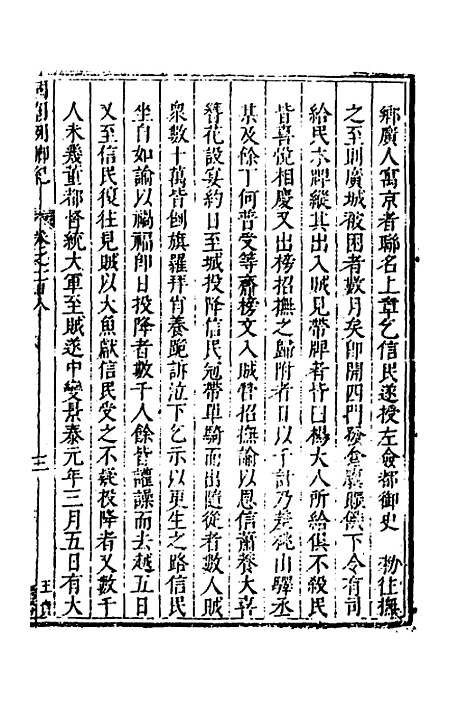 鄉廣人寓京者聯名上章乞信民遂授左僉都御史　勑往撫
之至則廣城被困者數月矣即開四門發倉廩賑饑下令有司
給民木牌縱其出入賊見帶牌者皆曰楊大人所給俱不殺民
皆喜悅相慶又出榜招撫之歸附者日以千計乃差僥山驛丞
基及餘丁何普受等齎榜文入賊營招撫諭以恩信蕭養大喜
簪花設宴約日至城投降信民冠帶單騎而出隨從者數人賊
衆數十萬皆倒旗羅拜肖養跪訴泣下乞示以更生之路信民
坐自如諭以禍福即日投降者數千人餘皆讙譟而去越五日
又至信民復往見賊以大魚獻信民受之不疑投降者又數千
人未幾董都督統大軍至賊遂中變景泰元年三月五日有大
國朝列卿紀　卷之一百八　三